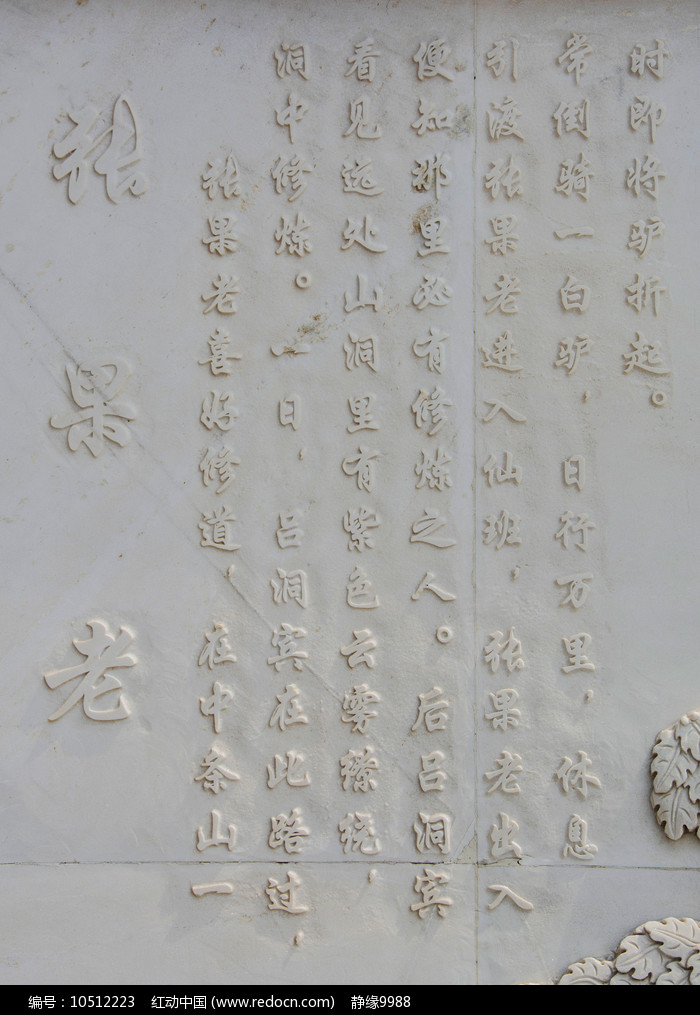 张果老
张果老喜好修道，在中条山一
洞中修炼。一日，吕洞宾在此路过，
看见远处山洞里有紫色云雾缭绕，
便知那里必有修炼之人。后吕洞宾
引渡张果老进入仙班，张果老出入
常倒骑一白驴，日行万里，休息
时即将驴折起。
编号：10512223 红动中国 (www.redocn.com) 静缘9988